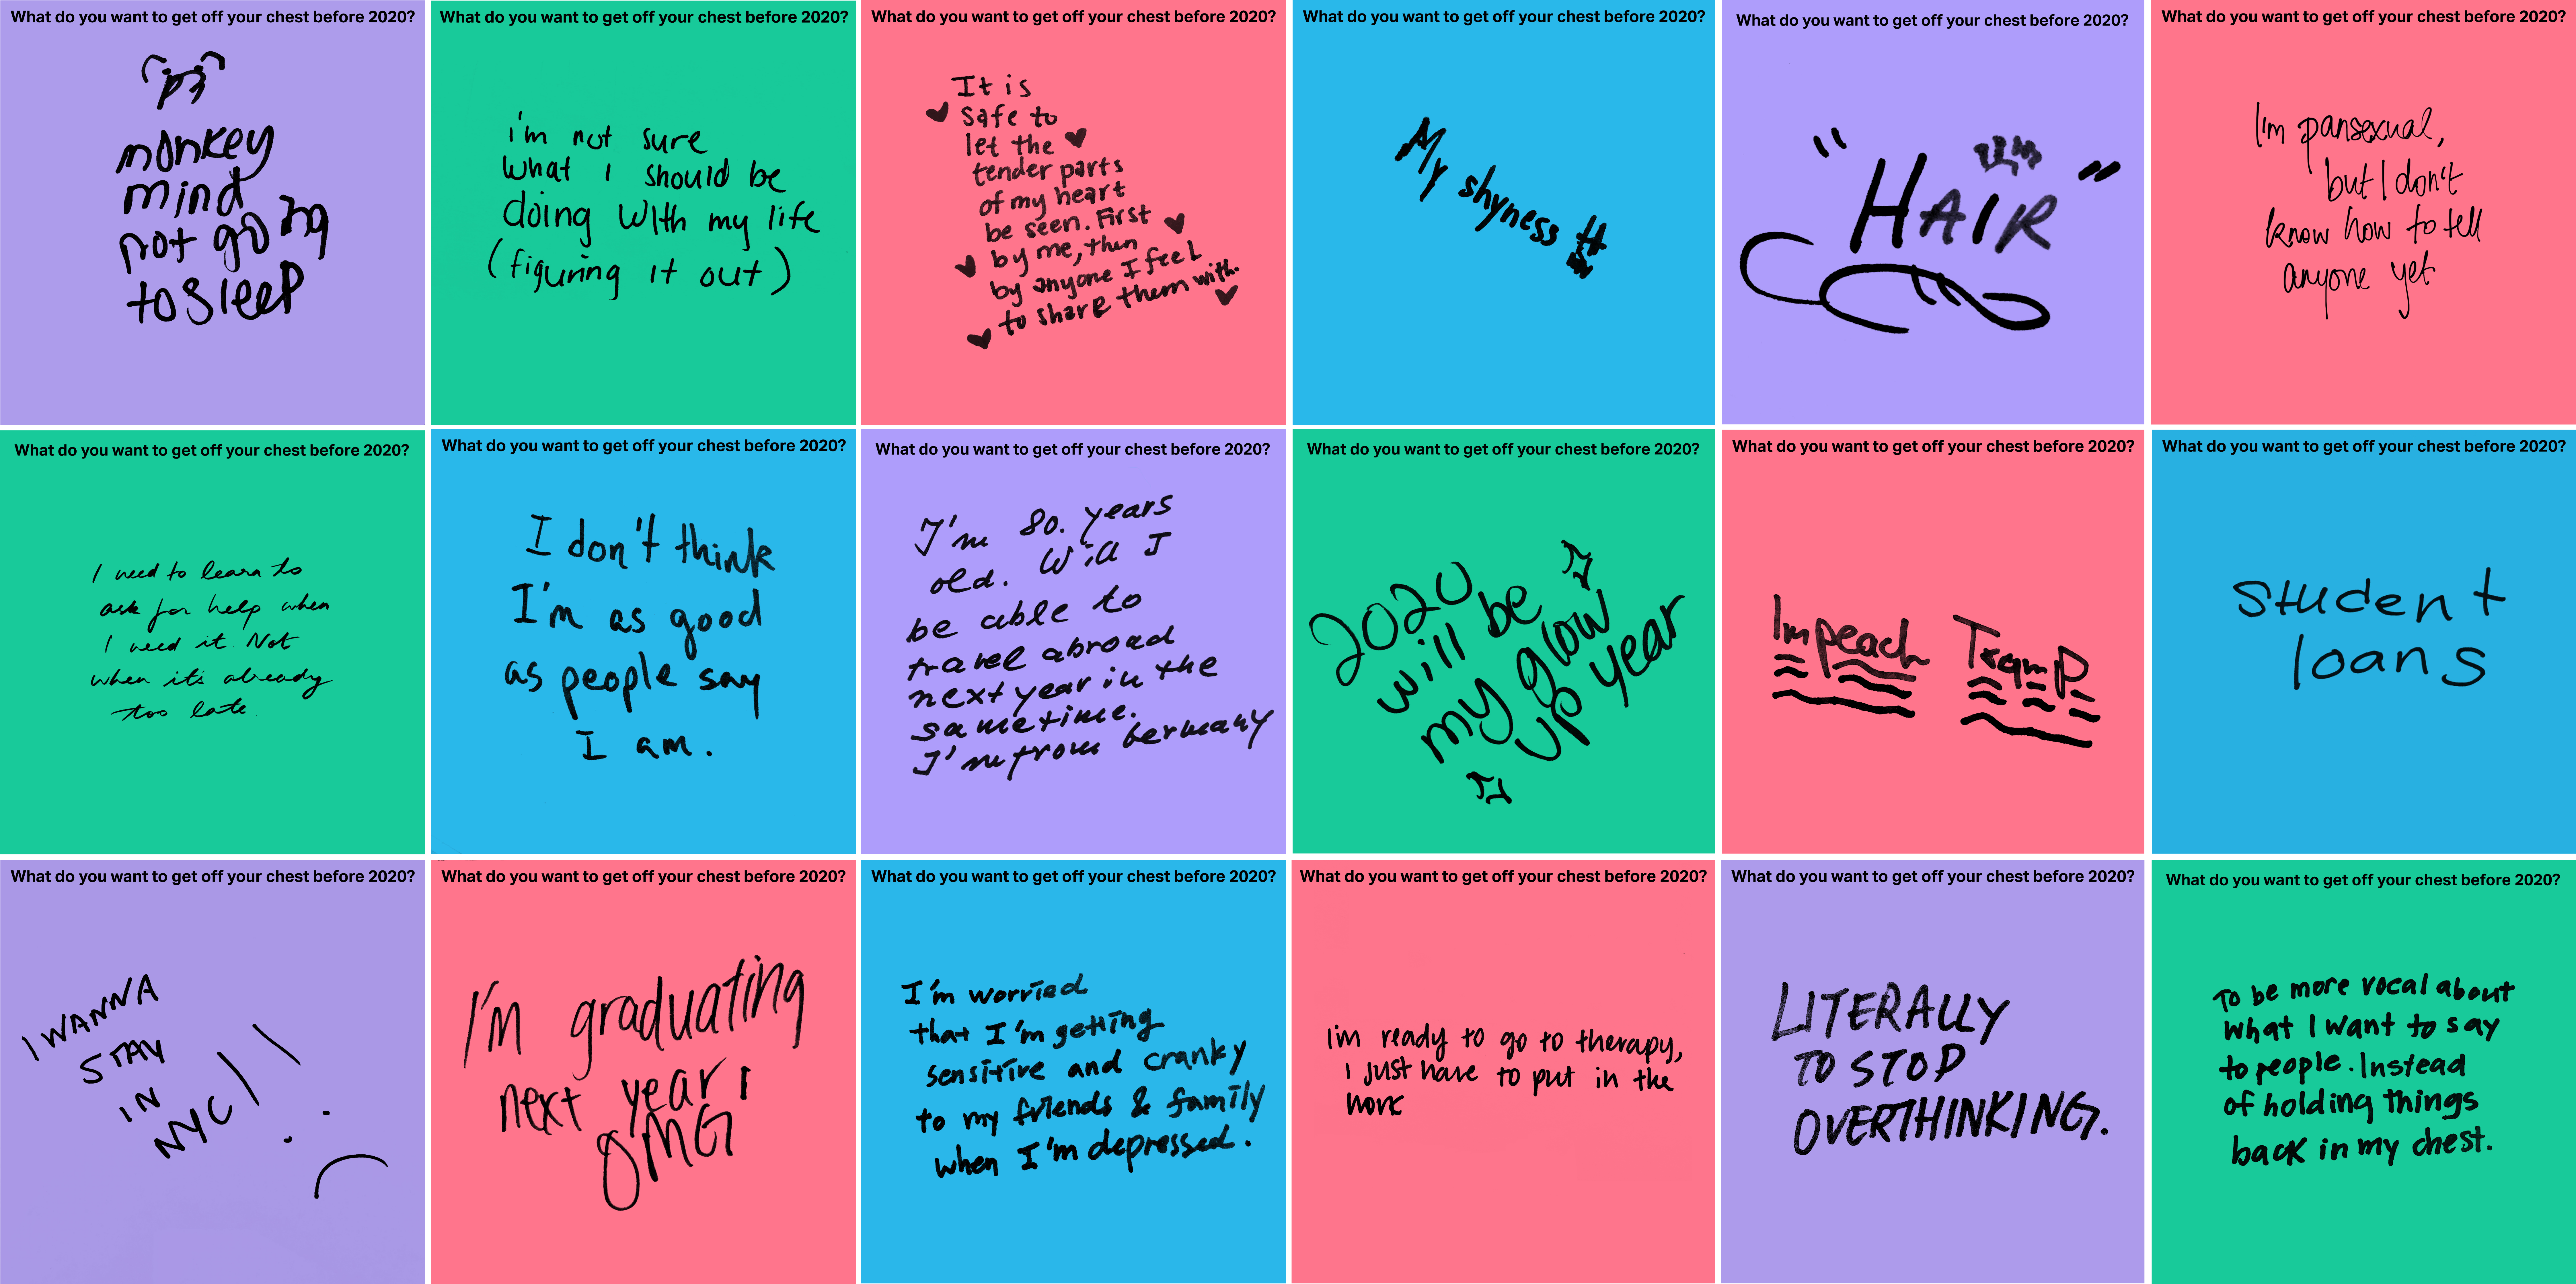 What do you want to get off your chest before 2020?
monkey
mind
not going
to sleep
What do you want to get off your chest before 2020?
i'm not sure
what I should be
doing with my life
(figuring it out)
What do you want to get off your chest before 2020?
It is
safe to
let the
tender parts
of my heart
be seen. First
by me, then
by anyone I feel
to share them with.
What do you want to get off your chest before 2020?
My shyness
What do you want to get off your chest before 2020?
"HAIR"
What do you want to get off your chest before 2020?
I'm pansexual,
but I don't
know how to tell
anyone yet
What do you want to get off your chest before 2020?
I need to learn to
ask for help when
I need it. Not
when it's already
too late.
What do you want to get off your chest before 2020?
I don't think
I'm as good
as people say
I am.
What do you want to get off your chest before 2020?
I'm 80. years
old. Will I
be able to
travel abroad
next year in the
sametime.
I'm from Germany
What do you want to get off your chest before 2020?
2020
will be
my glow
up year
What do you want to get off your chest before 2020?
Impeach Trump
What do you want to get off your chest before 2020?
Student
loans
What do you want to get off your chest before 2020?
I WANNA
STAY
IN
NYC!!
What do you want to get off your chest before 2020?
I'm graduating
next year!
OMG
What do you want to get off your chest before 2020?
I'm worried
that I'm getting
sensitive and cranky
to my friends & family
when I'm depressed.
What do you want to get off your chest before 2020?
I'm ready to go to therapy,
I just have to put in the
work
What do you want to get off your chest before 2020?
LITERALLY
TO STOP
OVERTHINKING.
What do you want to get off your chest before 2020?
To be more vocal about
what I want to say
to people. Instead
of holding things
back in my chest.